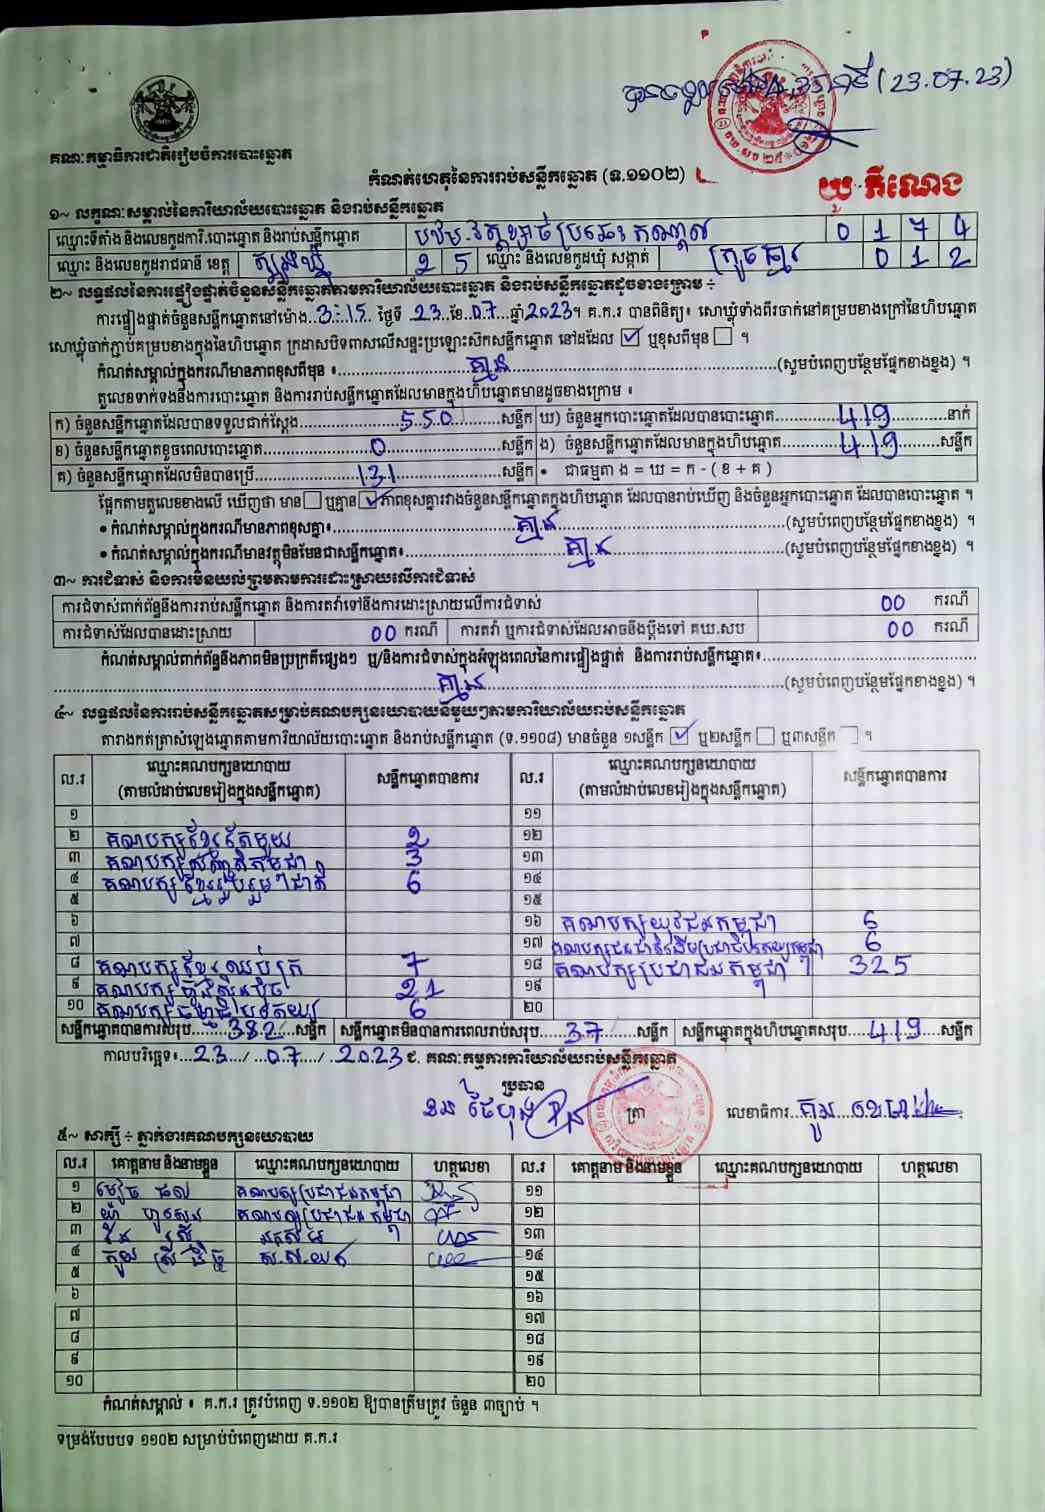 (23.07.23)
គណៈកម្មាធិការជាតិរៀបចំការបោះឆ្នោត
កំណត់ហេតុនៃការរាប់សន្លឹកឆ្នោត (ទ.១១០២)
១~ លក្ខណៈសម្គាល់នៃការិយាល័យបោះឆ្នោត និងរាប់សន្លឹកឆ្នោត
ឈ្មោះទីតាំង និងលេខកូដការិ.បោះឆ្នោត និងរាប់សន្លឹកឆ្នោត 0 1 7 4
ឈ្មោះ និងលេខកូដរាជធានី ខេត្ត ត្បូងឃ្មុំ 2 5 ឈ្មោះ និងលេខកូដឃុំ សង្កាត់ 0 1 2
២~ លទ្ធផលនៃការផ្ទៀងផ្ទាត់ចំនួនសន្លឹកឆ្នោតតាមការិយាល័យបោះឆ្នោត និងរាប់សន្លឹកឆ្នោតដូចខាងក្រោម ៖
ការផ្ទៀងផ្ទាត់ចំនួនសន្លឹកឆ្នោតនៅម៉ោង 3:15 ថ្ងៃទី 23 ខែ 07 ឆ្នាំ 2023។ គ.ក.រ បានពិនិត្យ៖ សោឃ្លុំទាំងពីរចាក់នៅគម្របខាងក្រៅនៃហិបឆ្នោត
សោឃ្លុំចាក់ភ្ជាប់គម្របខាងក្នុងនៃហិបឆ្នោត ក្រដាសបិទពាសលើសន្ទះប្រឡោះស៊កសន្លឹកឆ្នោត នៅដដែល ☑ ឬខុសពីមុន ☐ ។
កំណត់សម្គាល់ក្នុងករណីមានភាពខុសពីមុន ៖ គ្មាន (សូមបំពេញបន្ថែមផ្នែកខាងខ្នង) ។
តួលេខទាក់ទងនឹងការបោះឆ្នោត និងការរាប់សន្លឹកឆ្នោតដែលមានក្នុងហិបឆ្នោតមានដូចខាងក្រោម ៖
ក) ចំនួនសន្លឹកឆ្នោតដែលបានទទួលជាក់ស្តែង 550 សន្លឹក ឃ) ចំនួនអ្នកបោះឆ្នោតដែលបានបោះឆ្នោត 419 នាក់
ខ) ចំនួនសន្លឹកឆ្នោតខូចពេលបោះឆ្នោត 0 សន្លឹក ង) ចំនួនសន្លឹកឆ្នោតដែលមានក្នុងហិបឆ្នោត 419 សន្លឹក
គ) ចំនួនសន្លឹកឆ្នោតដែលមិនបានប្រើ 131 សន្លឹក • ជាធម្មតា ង = ឃ = ក - ( ខ + គ )
ផ្អែកតាមតួលេខខាងលើ ឃើញថា មាន ☐ ឬគ្មាន ☑ ភាពខុសគ្នារវាងចំនួនសន្លឹកឆ្នោតក្នុងហិបឆ្នោត ដែលបានរាប់ឃើញ និងចំនួនអ្នកបោះឆ្នោត ដែលបានបោះឆ្នោត ។
• កំណត់សម្គាល់ក្នុងករណីមានភាពខុសគ្នា៖ គ្មាន (សូមបំពេញបន្ថែមផ្នែកខាងខ្នង) ។
• កំណត់សម្គាល់ក្នុងករណីមានវត្ថុមិនមែនជាសន្លឹកឆ្នោត៖ គ្មាន (សូមបំពេញបន្ថែមផ្នែកខាងខ្នង) ។
៣~ ការជំទាស់ និងការមិនយល់ព្រមតាមការដោះស្រាយលើការជំទាស់
ការជំទាស់ពាក់ព័ន្ធនឹងការរាប់សន្លឹកឆ្នោត និងការតវ៉ាទៅនឹងការដោះស្រាយលើការជំទាស់ 00 ករណី
ការជំទាស់ដែលបានដោះស្រាយ 00 ករណី ការតវ៉ា ឬការជំទាស់ដែលអាចនឹងប្តឹងទៅ គឃ.សប 00 ករណី
កំណត់សម្គាល់ពាក់ព័ន្ធនឹងភាពមិនប្រក្រតីផ្សេងៗ ឬ/និងការជំទាស់ក្នុងអំឡុងពេលនៃការផ្ទៀងផ្ទាត់ និងការរាប់សន្លឹកឆ្នោត៖
គ្មាន (សូមបំពេញបន្ថែមផ្នែកខាងខ្នង) ។
៤~ លទ្ធផលនៃការរាប់សន្លឹកឆ្នោតសម្រាប់គណបក្សនយោបាយនីមួយៗតាមការិយាល័យរាប់សន្លឹកឆ្នោត
តារាងកត់ត្រាសំឡេងឆ្នោតតាមការិយាល័យបោះឆ្នោត និងរាប់សន្លឹកឆ្នោត (ទ.១១០៨) មានចំនួន ១សន្លឹក ☑ ឬ២សន្លឹក ☐ ឬ៣សន្លឹក ☐ ។
ល.រ ឈ្មោះគណបក្សនយោបាយ (តាមលំដាប់លេខរៀងក្នុងសន្លឹកឆ្នោត) សន្លឹកឆ្នោតបានការ ល.រ ឈ្មោះគណបក្សនយោបាយ (តាមលំដាប់លេខរៀងក្នុងសន្លឹកឆ្នោត) សន្លឹកឆ្នោតបានការ
១ ១១
២ គណបក្សខ្មែរតែមួយ 2 ១២
៣ គណបក្ស 3 ១៣
៤ គណបក្សខ្មែររួបរួមជាតិ 6 ១៤
៥ ១៥
៦ ១៦ គណបក្សយុវជនកម្ពុជា 6
៧ ១៧ 6
៨ គណបក្សខ្មែរឈប់ក្រ 7 ១៨ គណបក្សប្រជាជនកម្ពុជា 325
៩ គណបក្សហ៊្វុនស៊ិនប៉ិច 21 ១៩
១០ គណបក្ស 6 ២០
សន្លឹកឆ្នោតបានការសរុប 382 សន្លឹក សន្លឹកឆ្នោតមិនបានការពេលរាប់សរុប 37 សន្លឹក សន្លឹកឆ្នោតក្នុងហិបឆ្នោតសរុប 419 សន្លឹក
កាលបរិច្ឆេទ៖ 23 / 07 / 2023 ជ. គណៈកម្មការការិយាល័យរាប់សន្លឹកឆ្នោត
ប្រធាន
ត្រា លេខាធិការ
៥~ សាក្សី ៖ ភ្នាក់ងារគណបក្សនយោបាយ
ល.រ គោត្តនាម និងនាមខ្លួន ឈ្មោះគណបក្សនយោបាយ ហត្ថលេខា ល.រ គោត្តនាម និងនាមខ្លួន ឈ្មោះគណបក្សនយោបាយ ហត្ថលេខា
១ គណបក្សប្រជាជនកម្ពុជា ១១
២ គណបក្សប្រជាជនកម្ពុជា ១២
៣ ១៣
៤ ១៤
៥ ១៥
៦ ១៦
៧ ១៧
៨ ១៨
៩ ១៩
១០ ២០
កំណត់សម្គាល់ ៖ គ.ក.រ ត្រូវបំពេញ ទ.១១០២ ឱ្យបានត្រឹមត្រូវ ចំនួន ៣ច្បាប់ ។
ទម្រង់បែបបទ ១១០២ សម្រាប់បំពេញដោយ គ.ក.រ